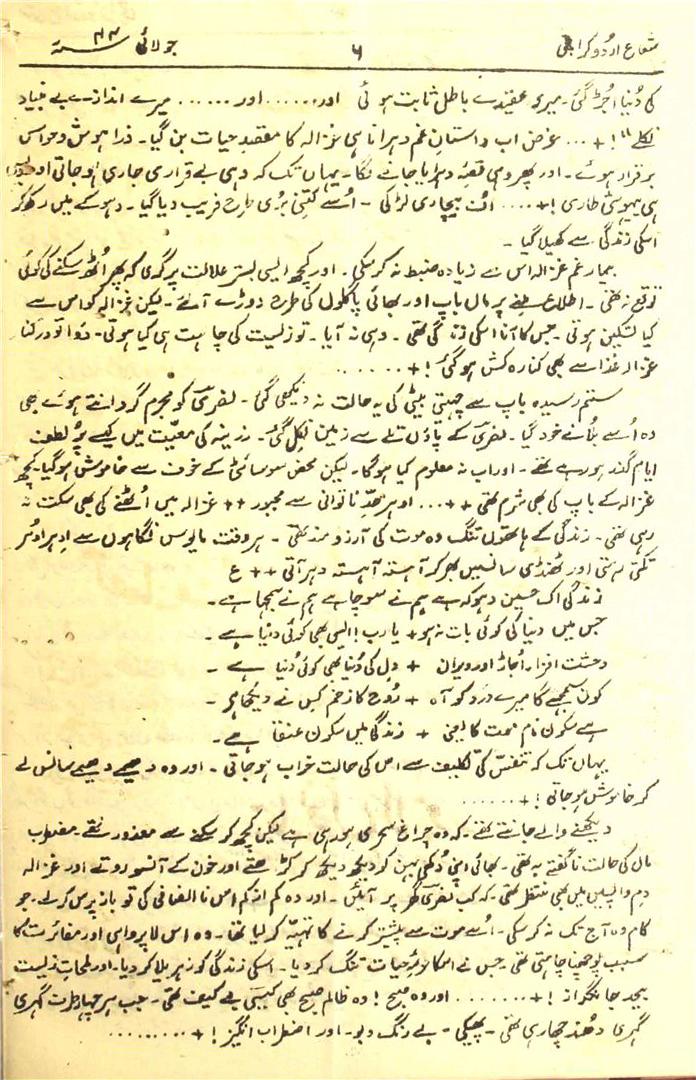 شعاع اردو کراچی ۶ جولائی سنہ ۴۴
کی دُنیا اُجڑ گئی۔ میری عقیدے باطل ثابت ہوئی اور....... اور....... میرے اندازے بے بنیاد
نکلے"! +... غرض اب داستانِ غم دہرانا ہی غزالہ کا مقصدِ حیات بن گیا۔ ذرا ہوش و حواس
برقرار ہوئے۔ اور پھر وہی قصّہ دہرایا جانے لگا۔ یہاں تک کہ وہی بے قراری جاری ہو جاتی اور
ہی بیہوشی طاری! +.... اُف بیچاری لڑکی۔ اُسے کتنی بُری طرح فریب دیا گیا۔ دہوکے میں رکھ کر
اسکی زندگی سے کھیلا گیا۔
بیمارِ غم غزالہ اس سے زیادہ ضبط نہ کر سکی۔ اور کچھ ایسی بسترِ علالت پر گری کہ پھر اُٹھ سکنے کی کوئی
توقع نہ تھی۔ اطلاع ملنے پر ماں باپ اور بھائی پاگلوں کی طرح دوڑے آئے۔ لیکن غزالہ کو اس سے
کیا تسکین ہوتی۔ جس کا آنا اسکی زندگی تھی۔ وہی نہ آیا۔ تو زیست کی چاہت ہی کیا ہوتی۔ دوا تو درکنار
غزالہ غذا سے بھی کنارہ کش ہو گئی! +......
ستم رسیدہ باپ سے چہیتی بیٹی کی یہ حالت نہ دیکھی گئی۔ نصریؔ کو مجرم گردانتے ہوئے بھی
وہ اُسے بلانے خود گیا۔ نصریؔ کے پاؤں تلے سے زمین نکل گئی۔ زرینہ کی معیّت میں کیسے پُر لطف
ایام گذر ہو رہے تھے۔ اور اب نہ معلوم کیا ہوگا۔ لیکن محض سوسائٹی کے خوف سے خاموش ہو گیا۔ کچھ
غزالہ کے باپ کی بھی شرم تھی ++... اوہر حدِّ ناتوانی سے مجبور ++ غزالہ میں اُٹھنے کی بھی سکت نہ
رہی تھی۔ زندگی کے ہاتھوں تنگ وہ موت کی آرزو مند تھی۔ ہر وقت مایوس نگاہوں سے اِدہر اُدہر
تکتی رہتی اور ٹھنڈی سانسیں بھر کر آہستہ آہستہ دہراتی ++ ع
زندگی اک حسین دہوکہ ہے ہم نے سوچا ہے ہم نے سمجھا ہے۔
جس میں دنیا کی کوئی بات نہ ہو + یا رب! ایسی بھی کوئی دنیا ہے۔
وحشت افزا، اُجاڑ اور ویران + دِل کی دُنیا بھی کوئی دُنیا ہے۔
کون سمجھے گا میرے درد کو آہ + رُوح کا زخم کِس نے دیکھا ہے۔
ہے سکون نام موت کا یعنی + زندگی میں سکون عنقا ہے۔
یہاں تک کہ تنفّس کی تکلیف سے اس کی حالت خراب ہو جاتی۔ اور وہ دھیمے دھیمے سانس لے
کر خاموش ہو جاتی! +......
دیکھنے والے جانتے تھے۔ کہ وہ چراغِ سحری ہو رہی ہے لیکن کچھ کر سکنے سے معذور تھے۔ مضطرب
ماں کی حالت ناگفتہ بہ تھی۔ بھائی اپنی دُکھی بہن کو دیکھ دیکھ کر کڑھتے اور خون کے آنسو روتے اور غزالہ
دمِ واپسیں میں بھی منتظر تھی۔ کہ کب نصریؔ گھر پر آئیں۔ اور وہ کم از کم اس ناانصافی کی تو باز پرس کر لے۔ جو
کام وہ آج تک نہ کر سکی۔ اُسے موت سے پیشتر کرنے کا تہیّہ کر لیا تھا۔ وہ اس لاپرواہی اور مغائرت کا
سبب پوچھنا چاہتی تھی۔ جس نے اسکا عرصۂ حیات تنگ کر دیا۔ اسکی زندگی کو زہریلا کر دیا، اور لمحاتِ زیست
بیحد جانگداز! +....... اور وہ صبح! وہ ظالم صبح بھی کیسی بے کیف تھی۔ جب ہر چہار طرف گہری
گہری دُھند چھا رہی تھی۔ پھیکی۔ بے رنگ و بو۔ اور اضطراب انگیز! +.........